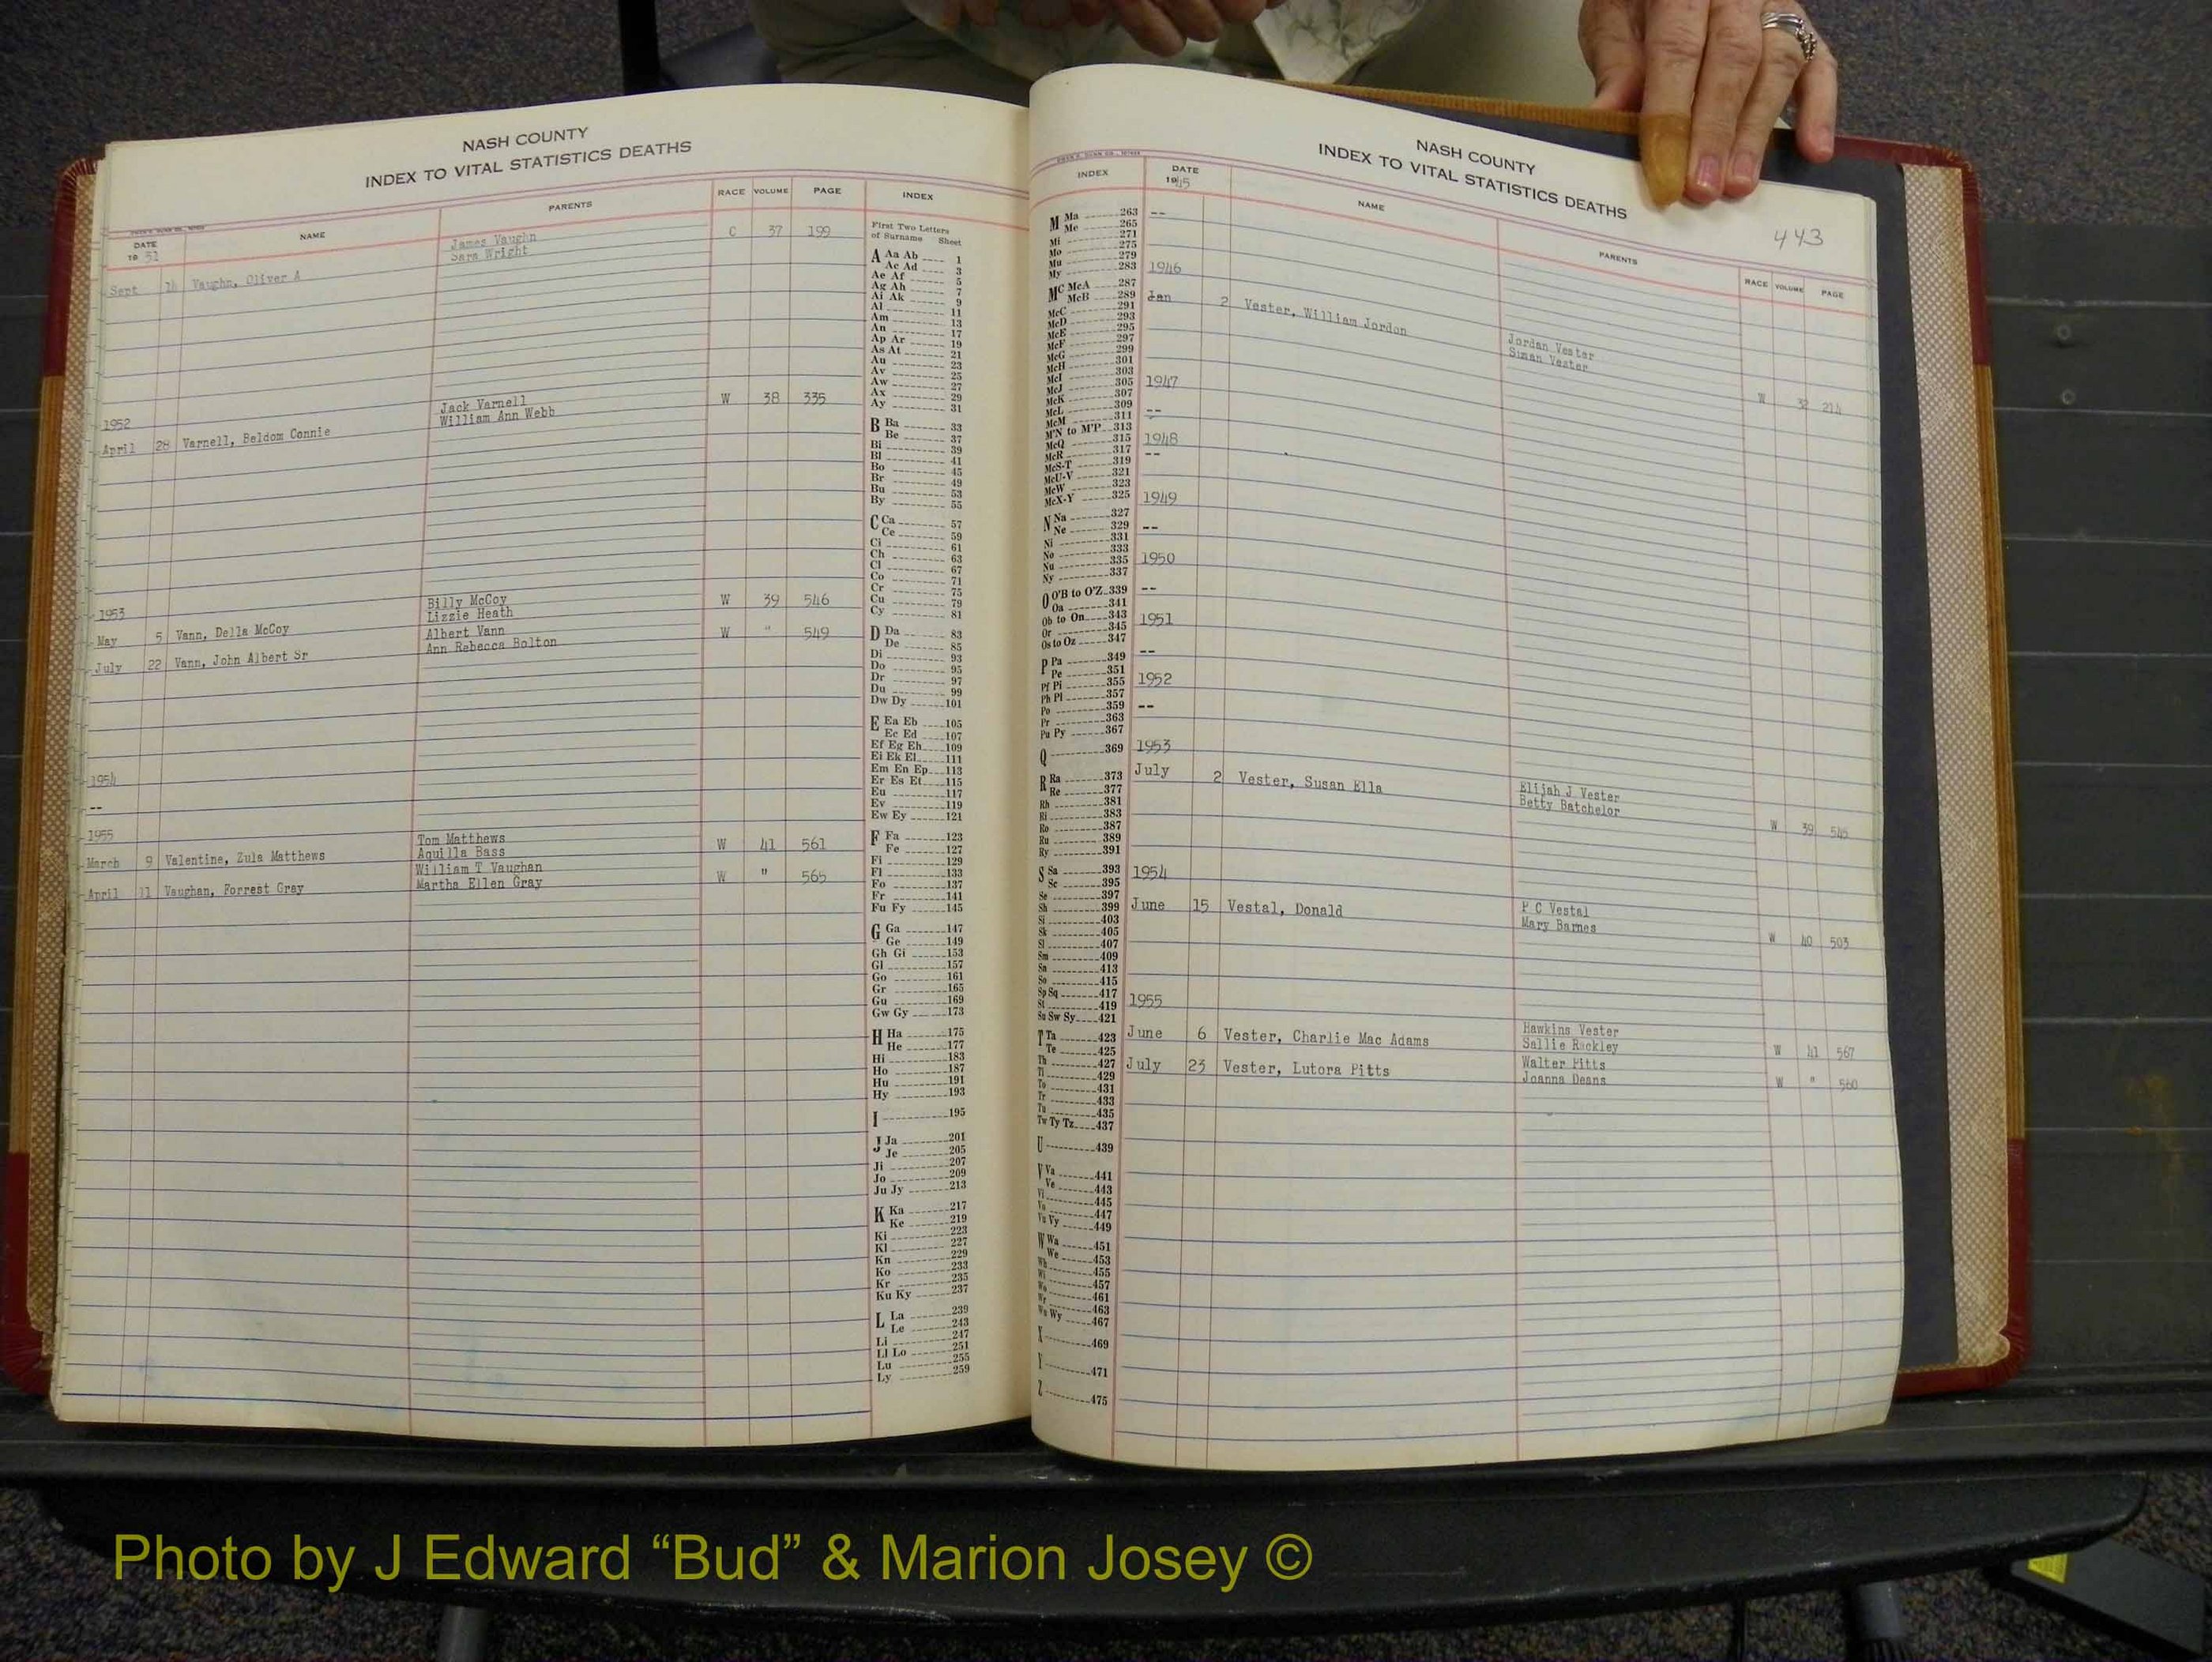 NASH COUNTY
INDEX TO VITAL STATISTICS DEATHS
DATE NAME PARENTS RACE VOLUME PAGE INDEX
19 51
James Vaughn C 37 199
Sara Wright
Sept 14 Vaughn, Oliver A
1952
Jack Varnell W 38 335
William Ann Webb
April 28 Varnell, Beldom Connie
1953
Billy McCoy W 39 546
Lizzie Heath
May 5 Vann, Della McCoy
Albert Vann W " 549
Ann Rebecca Bolton
July 22 Vann, John Albert Sr
1954
--
1955
Tom Matthews W 41 561
Aquilla Bass
March 9 Valentine, Zula Matthews
William T Vaughan W " 565
Martha Ellen Gray
April 11 Vaughan, Forrest Gray
First Two Letters
of Surname Sheet
A Aa Ab 1
Ac Ad 3
Ae Af 5
Ag Ah 7
Ai Ak 9
Al 11
Am 13
An 17
Ap Ar 19
As At 21
Au 23
Av 25
Aw 27
Ax 29
Ay 31
B Ba 33
Be 37
Bi 39
Bl 41
Bo 45
Br 49
Bu 53
By 55
C Ca 57
Ce 59
Ci 61
Ch 63
Cl 67
Co 71
Cr 75
Cu 79
Cy 81
D Da 83
De 85
Di 93
Do 95
Dr 97
Du 99
Dw Dy 101
E Ea Eb 105
Ec Ed 107
Ef Eg Eh 109
Ei Ek El 111
Em En Ep 113
Er Es Et 115
Eu 117
Ev 119
Ew Ey 121
F Fa 123
Fe 127
Fi 129
Fl 133
Fo 137
Fr 141
Fu Fy 145
G Ga 147
Ge 149
Gh Gi 153
Gl 157
Go 161
Gr 165
Gu 169
Gw Gy 173
H Ha 175
He 177
Hi 183
Ho 187
Hu 191
Hy 193
I 195
J Ja 201
Je 205
Ji 207
Jo 209
Ju Jy 213
K Ka 217
Ke 219
Ki 223
Kl 227
Kn 229
Ko 233
Kr 235
Ku Ky 237
L La 239
Le 243
Li 247
Ll Lo 251
Lu 255
Ly 259
NASH COUNTY
INDEX TO VITAL STATISTICS DEATHS
443
INDEX DATE NAME PARENTS RACE VOLUME PAGE
1945
--
1946
Jan 2 Vester, William Jordon
Jordan Vester
Susan Vester
W 32 214
1947
--
1948
--
1949
--
1950
--
1951
--
1952
--
1953
July 2 Vester, Susan Ella
Elijah J Vester
Betty Batchelor
W 39 545
1954
June 15 Vestal, Donald
P C Vestal
Mary Barnes
W 40 503
1955
June 6 Vester, Charlie Mac Adams
Hawkins Vester
Sallie Rackley
W 41 567
July 23 Vester, Lutora Pitts
Walter Pitts
Joanna Deans
W " 560
M Ma 263
Me 265
Mi 271
Mo 275
Mu 279
My 283
Mc McA 287
McB 289
McC 291
McD 293
McE 295
McF 297
McG 299
McH 301
McI 303
McJ 305
McK 307
McL 309
McM 311
M'N to M'P 313
McQ 315
McR 317
McS-T 319
McU-V 321
McW 323
McX-Y 325
N Na 327
Ne 329
Ni 331
No 333
Nu 335
Ny 337
O O'B to O'Z 339
Oa 341
Ob to On 343
Or 345
Os to Oz 347
P Pa 349
Pe 351
Pf Pi 355
Ph Pl 357
Po 359
Pr 363
Pu Py 367
Q 369
R Ra 373
Re 377
Rh 381
Ri 383
Ro 387
Ru 389
Ry 391
S Sa 393
Sc 395
Se 397
Sh 399
Si 403
Sk 405
Sl 407
Sm 409
Sn 413
So 415
Sp Sq 417
St 419
Su Sw Sy 421
T Ta 423
Te 425
Th 427
Ti 429
To 431
Tr 433
Tu 435
Tw Ty Tz 437
U 439
V Va 441
Ve 443
Vi 445
Vo 447
Vu Vy 449
W Wa 451
We 453
Wh 455
Wi 457
Wo 461
Wr 463
Wu Wy 467
X 469
Y 471
Z 475
Photo by J Edward “Bud” & Marion Josey ©